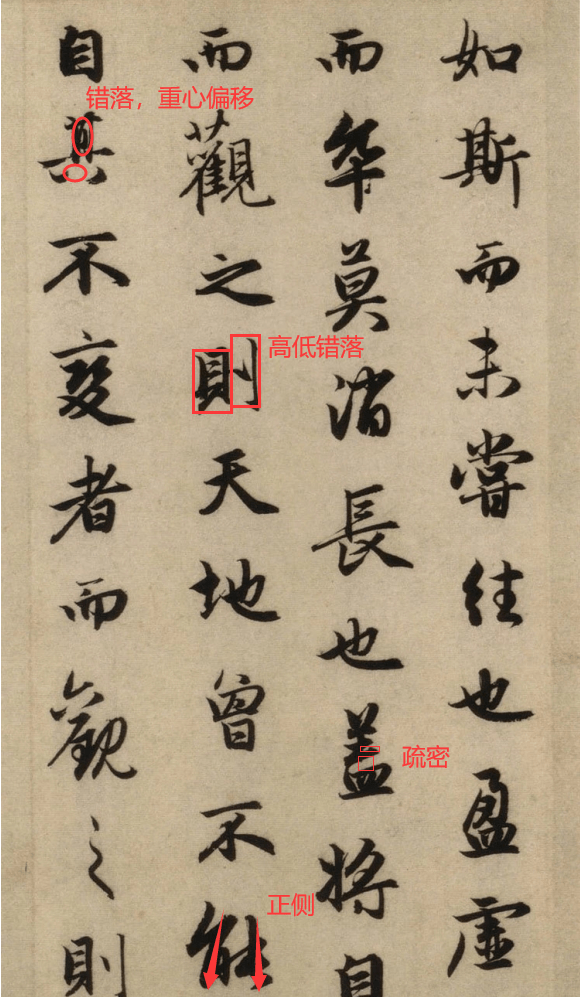 如斯而未嘗往也盈虛
而卒莫消長也蓋將自
而觀之則天地曾不能
自其不變者而觀之則
错落，重心偏移
高低错落
疏密
正侧